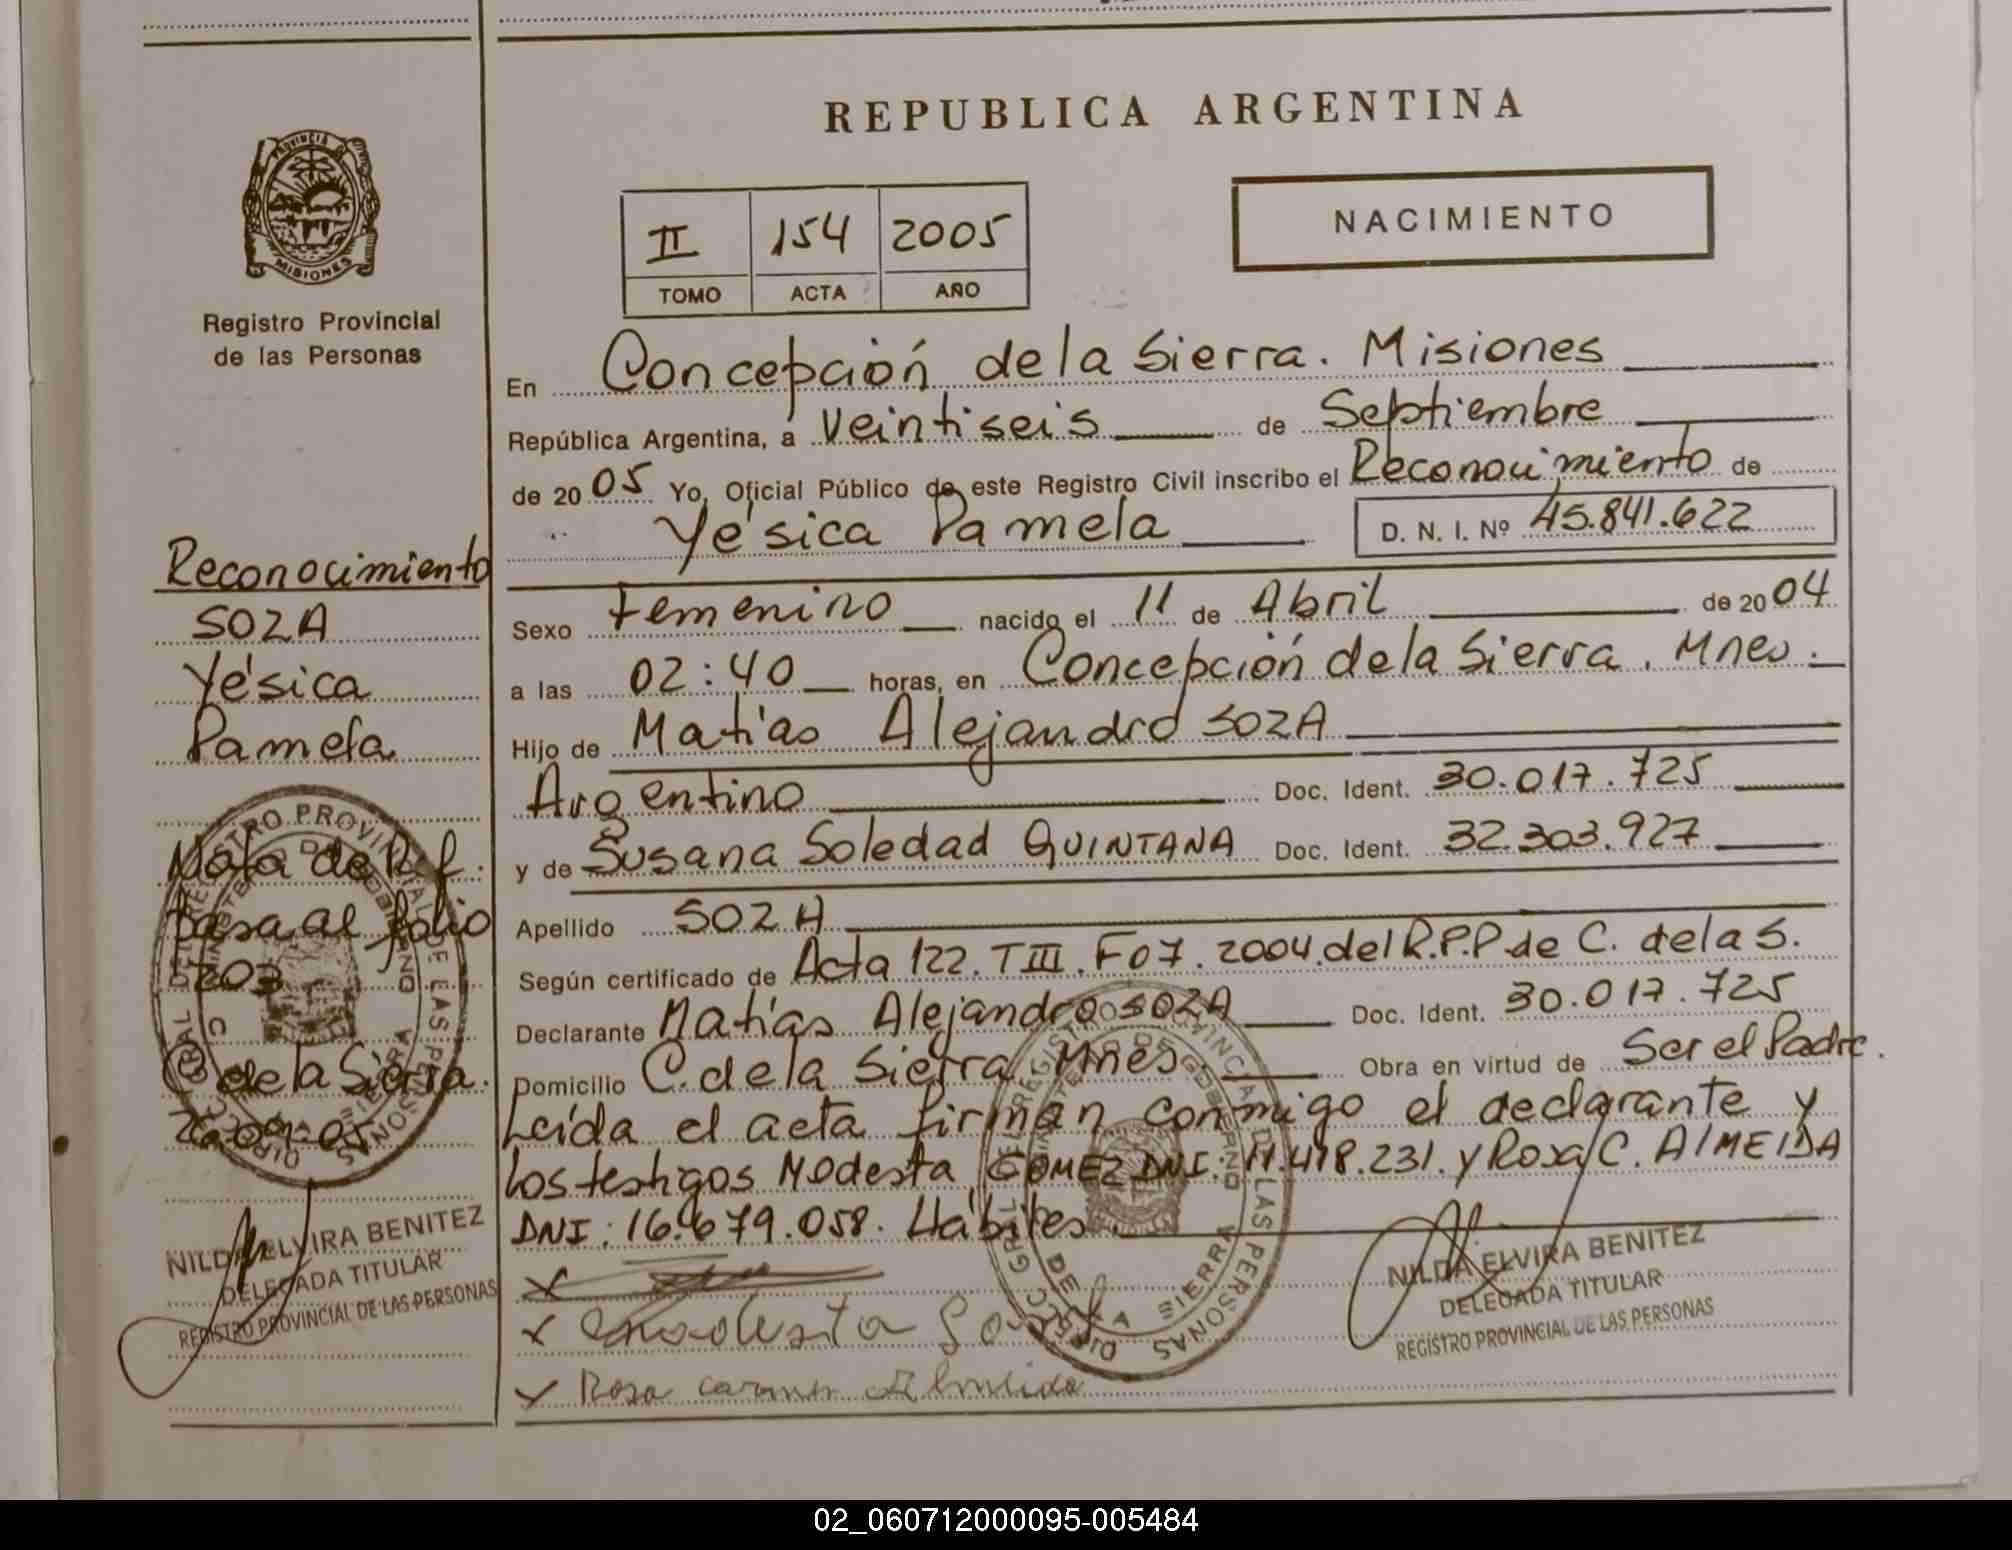 REPUBLICA ARGENTINA
PROVINCIA DE
MISIONES
Registro Provincial
de las Personas
II 154 2005
TOMO ACTA AÑO
NACIMIENTO
En Concepción de la Sierra. Misiones
República Argentina, a Veintiseis de Septiembre
de 2005 Yo, Oficial Público de este Registro Civil inscribo el Reconocimiento de
Yésica Pamela D. N. I. Nº 45.841.622
Sexo Femenino nacido el 11 de Abril de 2004
a las 02:40 horas, en Concepción de la Sierra. Mnes.
Hijo de Matías Alejandro SOZA
Argentino Doc. Ident. 30.017.725
y de Susana Soledad QUINTANA Doc. Ident. 32.303.927
Apellido SOZA
Según certificado de Acta 122. TIII. F07. 2004. del R.P.P de C. de la S.
Declarante Matías Alejandro SOZA Doc. Ident. 30.017.725
Domicilio C. de la Sierra Mnes. Obra en virtud de Ser el Padre.
Leída el acta firman conmigo el declarante y
los testigos Modesta GOMEZ DNI: 11.418.231. y Rosa C. AlMEIDA
DNI: 16.679.058. Hábiles.
Modesta
Rosa carmen Almeida
NILDA ELVIRA BENITEZ
DELEGADA TITULAR
REGISTRO PROVINCIAL DE LAS PERSONAS
Reconocimiento
SOZA
Yésica
Pamela
Nota de Ref.
Pasa al folio
203
C de la Sierra.
NILDA ELVIRA BENITEZ
DELEGADA TITULAR
REGISTRO PROVINCIAL DE LAS PERSONAS
02_060712000095-005484